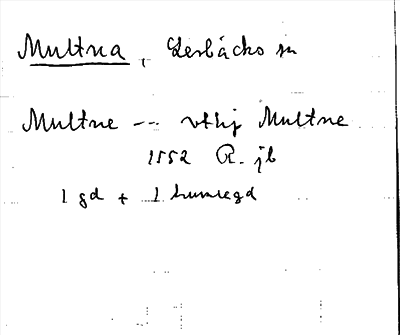 Multna, Lerbäcks sn
Multne -- vthj Multne
1552 R. jb
1 gd + 1 humlegd